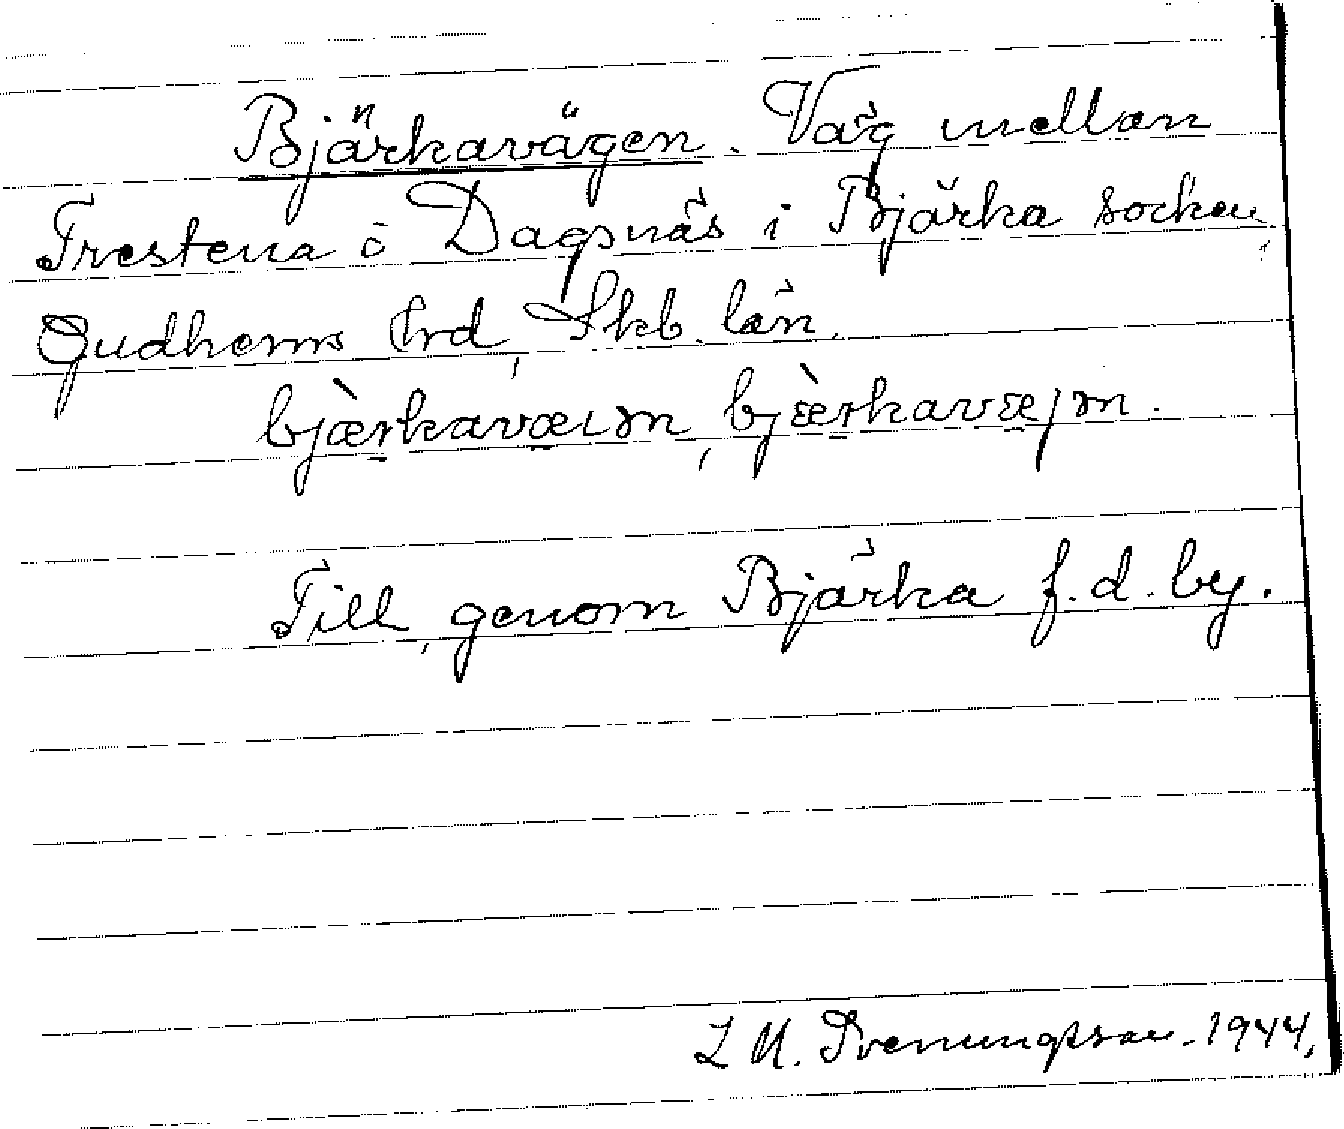 Bjärkavägen. Väg mellan
Frestena o Dagsnäs i Bjärka socken,
Gudhems hrd, Skb. län.
bjæ̀rkavæıən, bjæ̀rkavæjən.
Till, genom Bjärka f.d. by.
L M. Svenungsson. 1944.